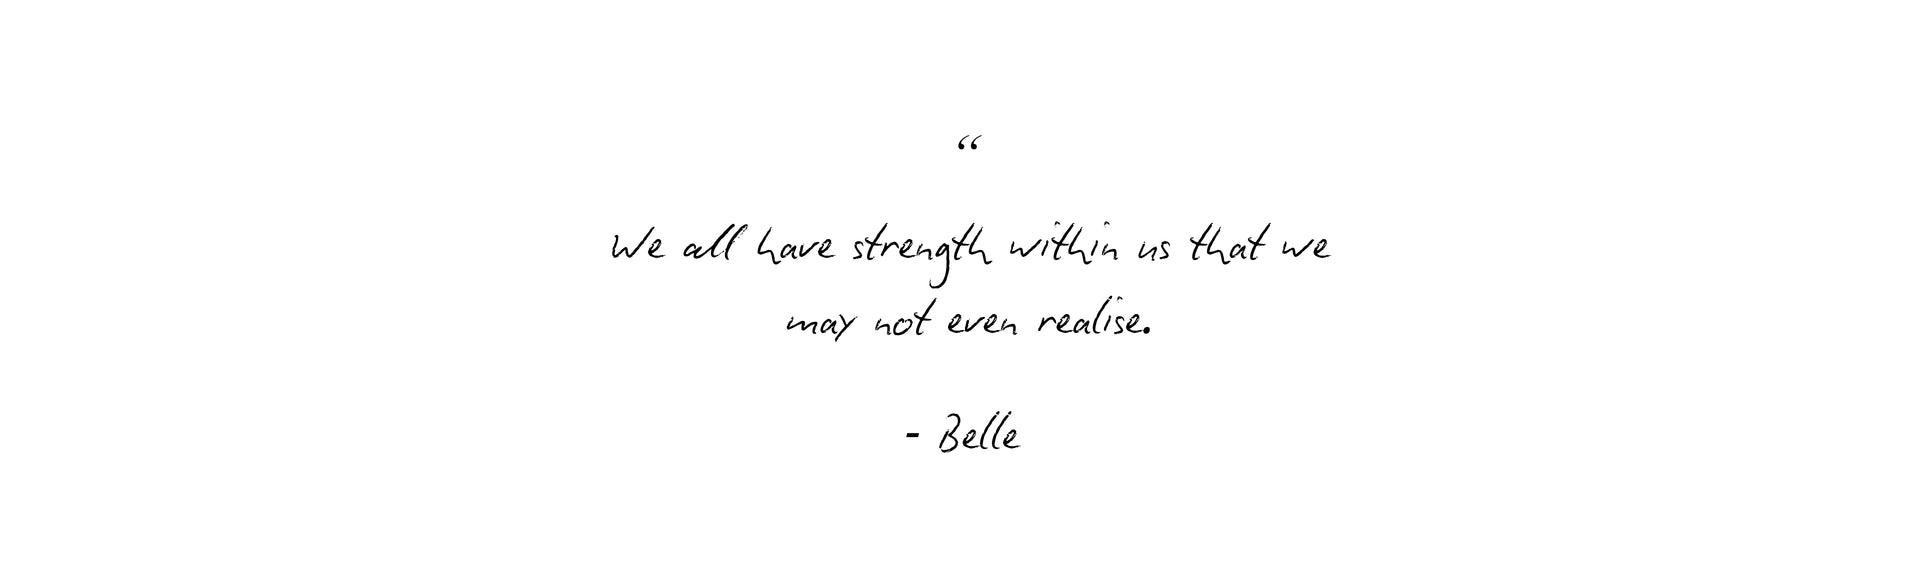 “
We all have strength within us that we
may not even realise.
- Belle